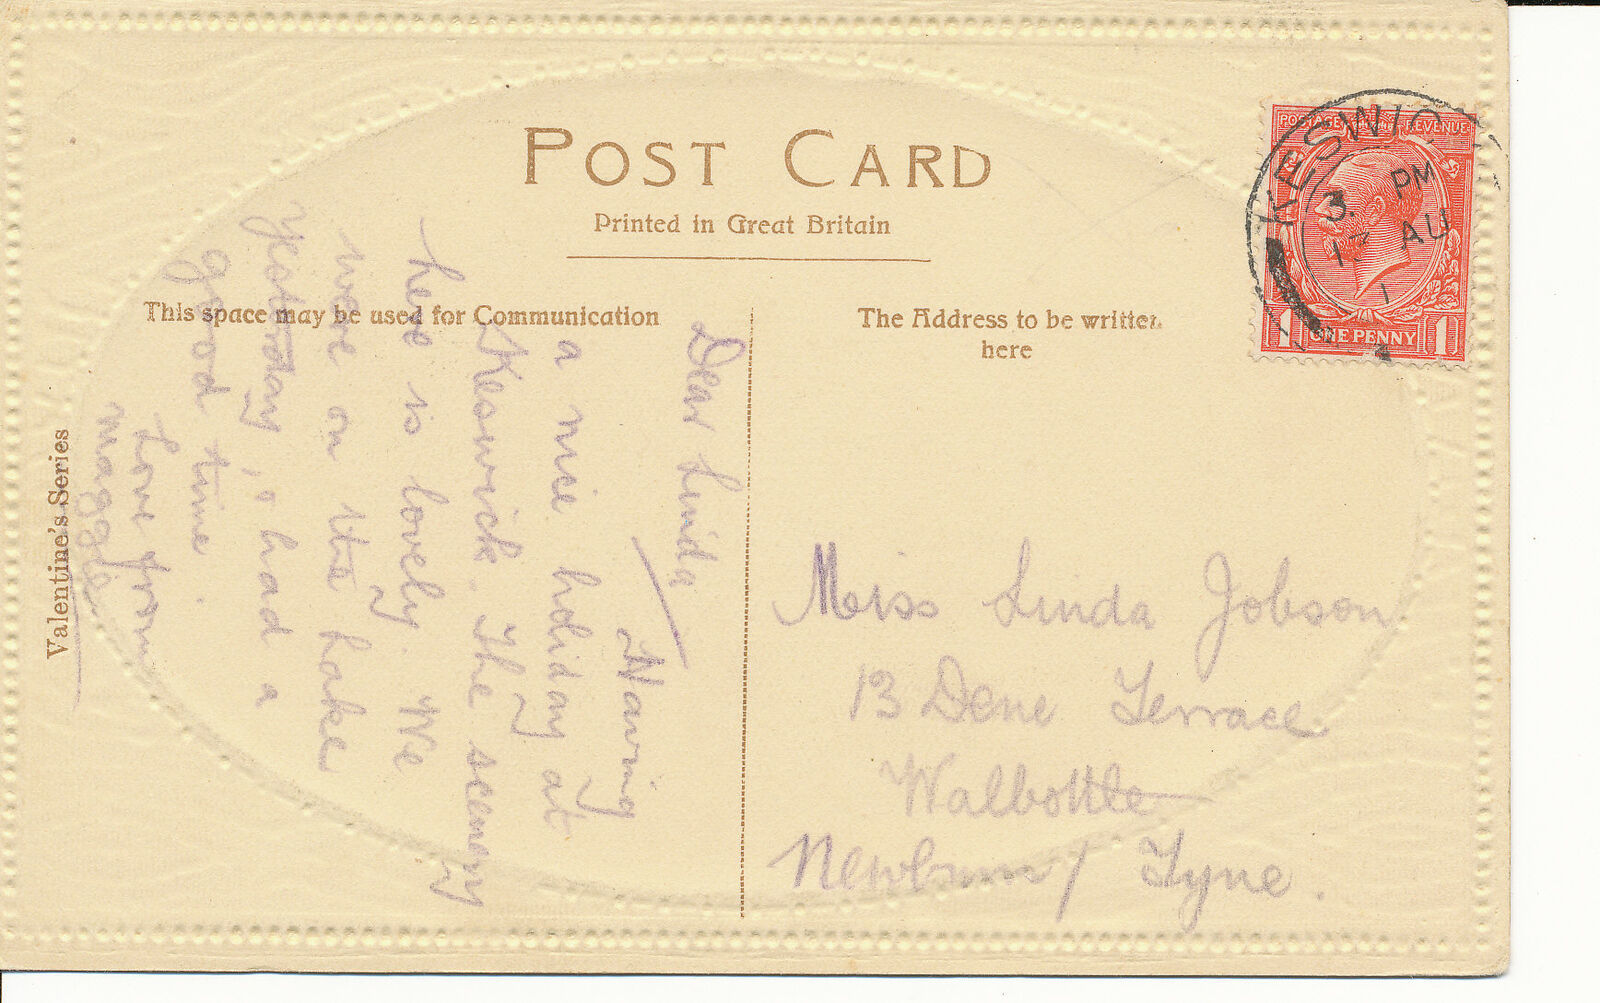 POST CARD
Printed in Great Britain
This space may be used for Communication
The Address to be written
here
Valentine's Series
Dear Linda
Having
a nice holiday at
Keswick. The scenery
here is lovely. We
were on the Lake
yesterday, & had a
good time.
Love from
Maggie.
Miss Linda Jobson
13 Dene Terrace
Walbottle
Newburn / Tyne.
POSTAGE REVENUE
1 ONE PENNY 1
KESWIC
3. PM
17 AU